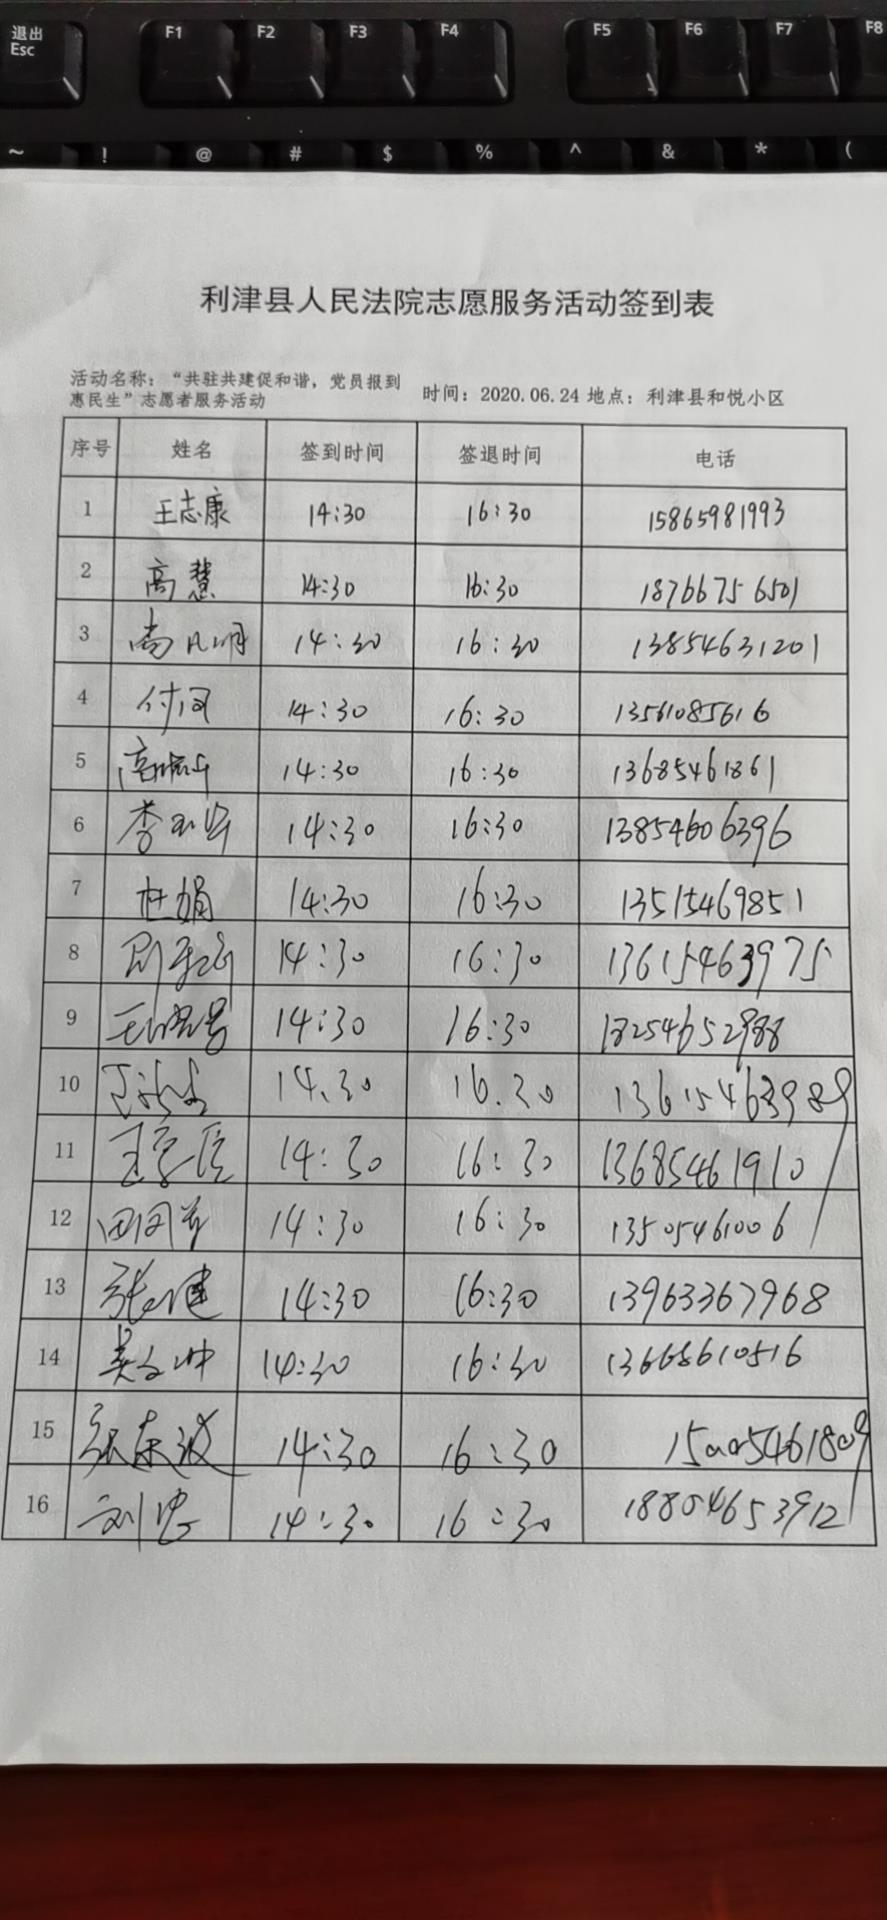 退出
Esc
F1 F2 F3 F4 F5 F6 F7 F8
~ ! @ # $ % ^ & * (
利津县人民法院志愿服务活动签到表
活动名称：“共驻共建促和谐，党员报到
惠民生”志愿者服务活动
时间：2020.06.24 地点：利津县和悦小区
序号 姓名 签到时间 签退时间 电话
1 王志康 14:30 16:30 15865981993
2 高慧 14:30 16:30 18766756501
3 尚凡明 14:30 16:30 13854631201
4 付同 14:30 16:30 13561085616
5 14:30 16:30 13685461861
6 李玉 14:30 16:30 13854606396
7 杜娟 14:30 16:30 13515469851
8 14:30 16:30 13615463975
9 王 14:30 16:30 18254652988
10 王 14.30 16.30 13615463989
11 王 14:30 16:30 13685461910
12 田同 14:30 16:30 13505461006
13 张健 14:30 16:30 13963367968
14 吴文冲 14:30 16:30 13668610516
15 张东波 14:30 16:30 15005461809
16 刘忠 14:30 16:30 18804653912